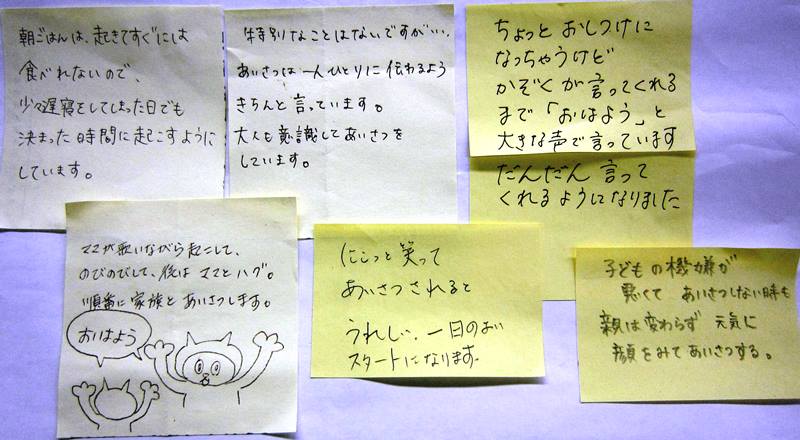 朝ごはんは、起きてすぐには
食べれないので、
少々遅寝をしてしまった日でも
決まった時間に起こすように
しています。
特別なことはないですが‥‥
あいさつは一人ひとりに伝わるよう
きちんと言っています。
大人も意識してあいさつを
しています。
ちょっとおしつけに
なっちゃうけど
かぞくが言ってくれる
まで「おはよう」と
大きな声で言っています
だんだん言って
くれるようになりました
ママが歌いながら起こして、
のびのびして、後はママとハグ。
順番に家族とあいさつします。
おはよう
にこっと笑って
あいさつされると
うれしい、一日のよい
スタートになります。
子どもの機嫌が
悪くてあいさつしない時も
親は変わらず元気に
顔をみてあいさつする。